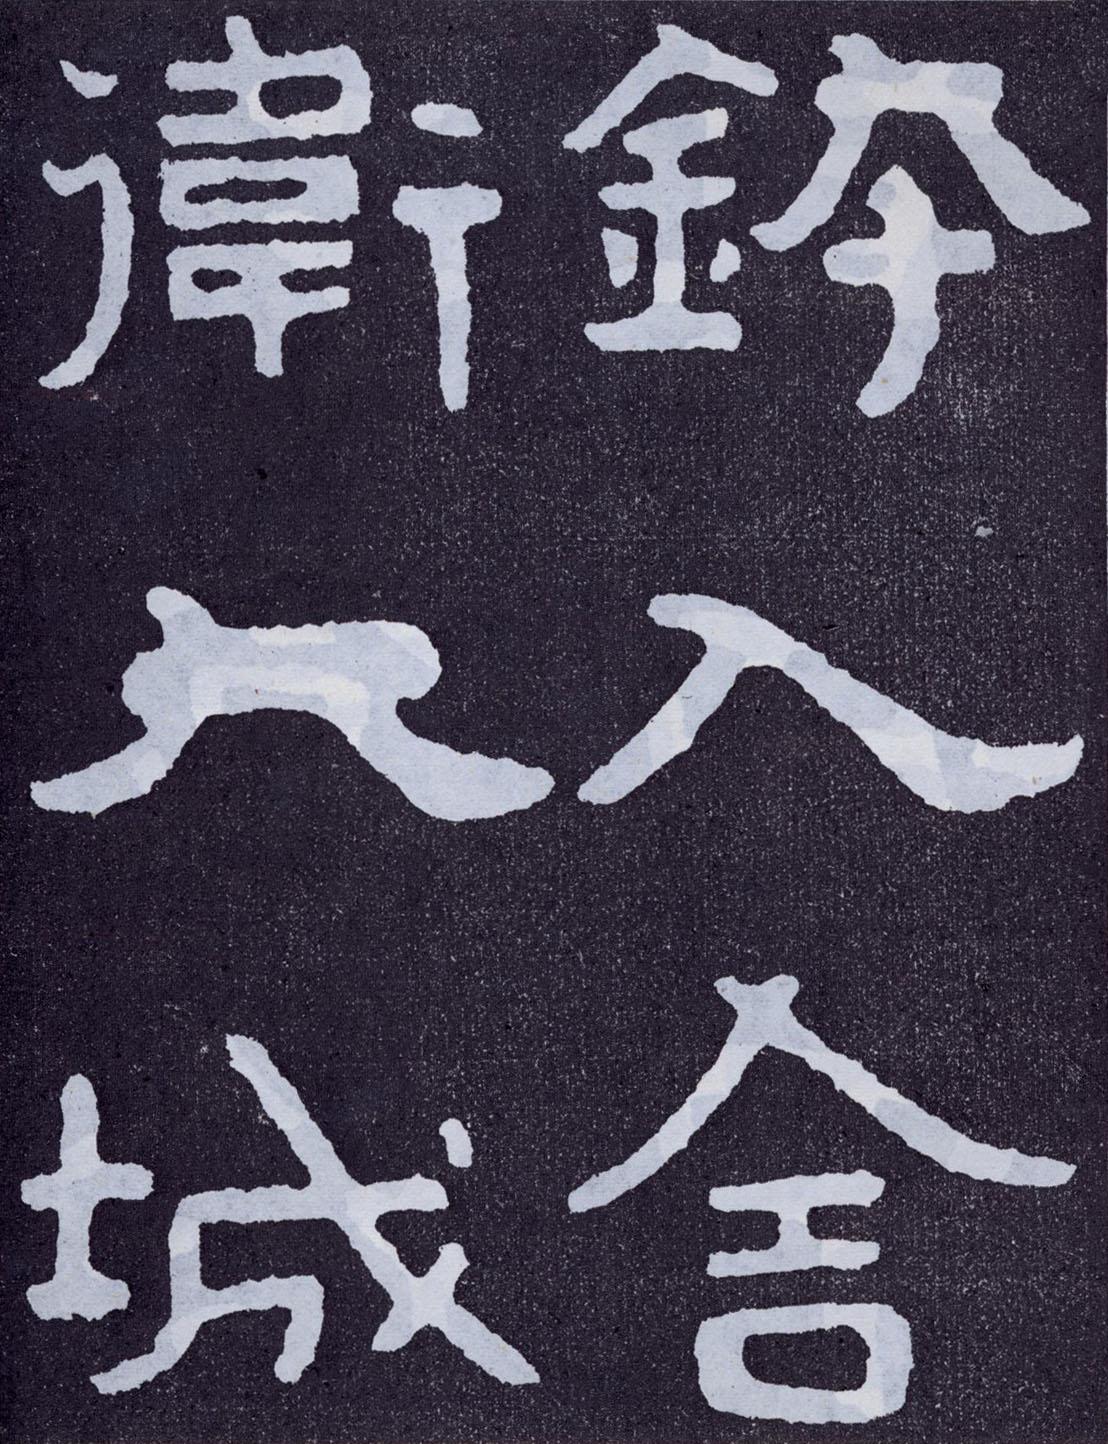 鉢入舍
衛大城